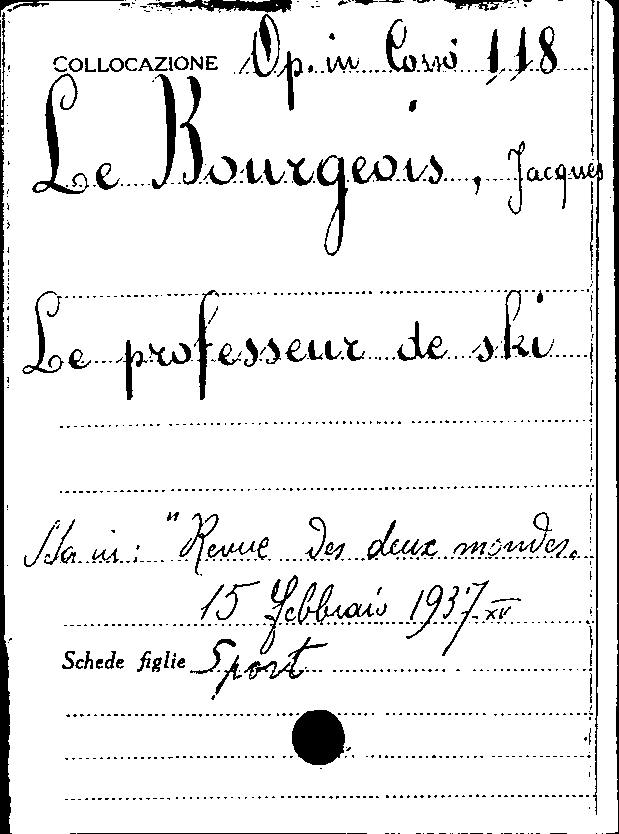 COLLOCAZIONE Op. in Cassö 118
Le Bourgeois, Jacques
Le professeur de ski
Sta in: "Revue des deux mondes.
15 febbraio 1937 XV
Schede figlie Sport